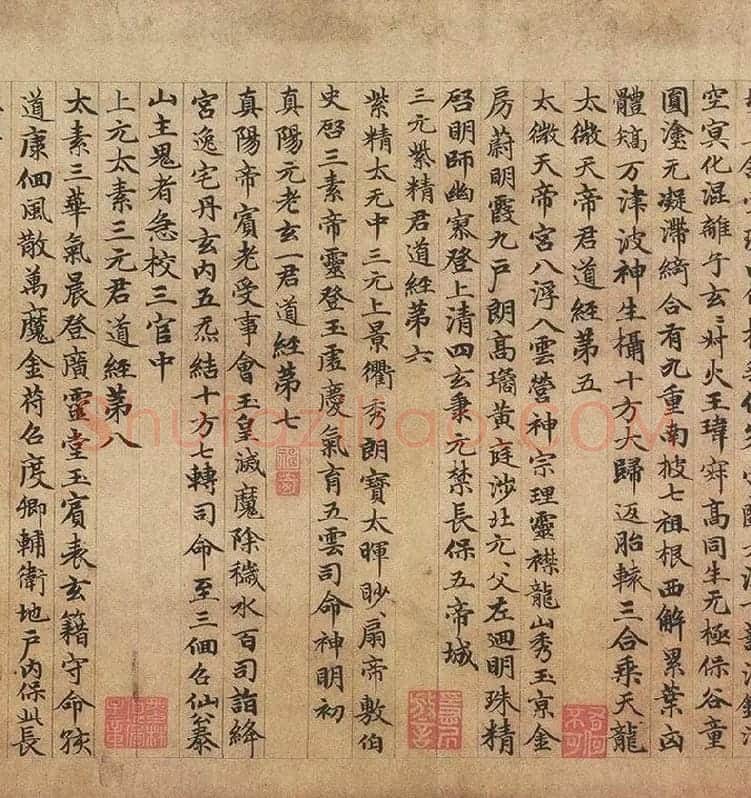 空冥化混離午玄〻火王瑋高同生元極保谷童
圓塗元凝滯綺合有九重南披七祖根西解累葉凶
體矯万津波神生攝十方大歸返胎轅三合乘天龍
太微天帝君道經第五
太微天帝宮八浮八雲營神宗理靈襟龍山秀玉京金
房蔚明霞九戶朗高璚黃庭涉北元〻父左迴明珠精
啓明師幽寮登上清四玄秉元禁長保五帝城
三元紫精君道經第六
紫精太无中三元上景衢秀朗寶太暉眇〻扇帝敷伯
史啓三素帝靈登玉虛慶氣育五雲司命神明初
真陽元老玄一君道經第七
真陽帝賓老受事會玉皇滅魔除穢水百司詣絳
宮逸宅丹玄內五炁結十方七轉司命至三佪召仙翁泰
山主鬼者急校三官中
上元太素三元君道經第八
太素三華氣晨登廣靈堂玉賓表玄籍守命孩
道康佪風散萬魔金符召度卿輔衛地戶內保此長
Shufaziliao.COM